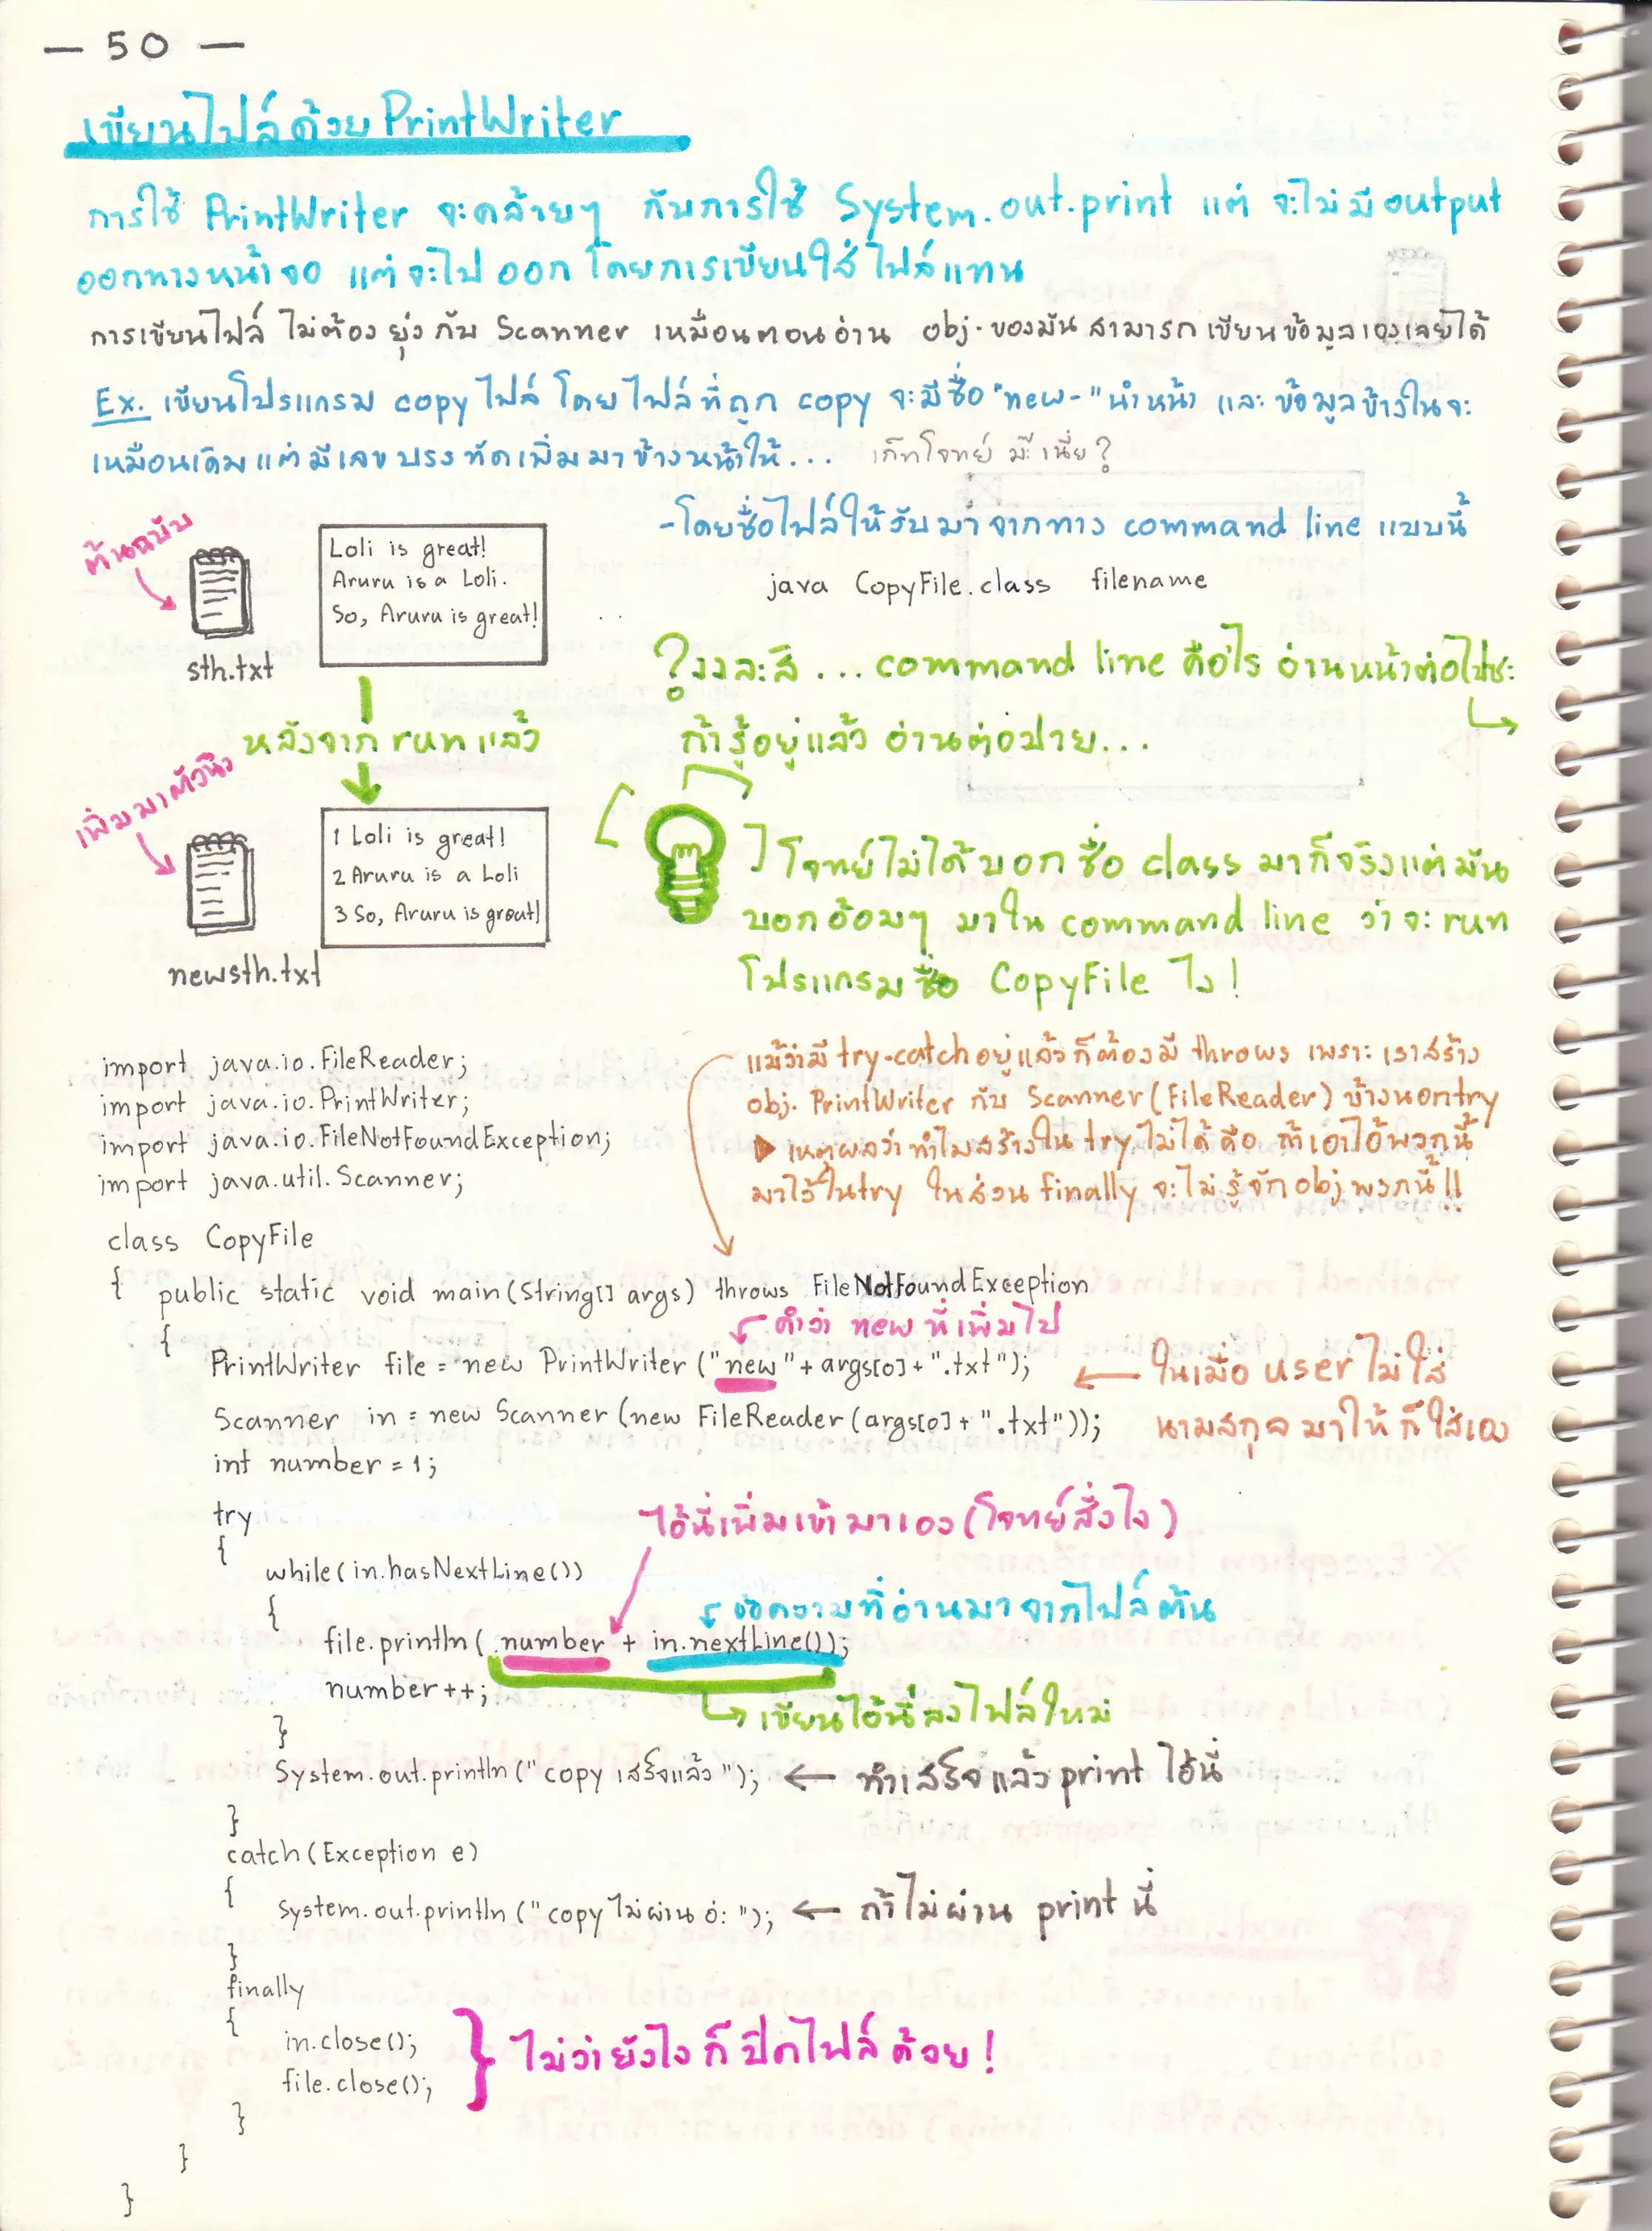 — 50 —
เขียนไฟล์ด้วย PrintWriter
การใช้ PrintWriter จะคล้ายๆ กับการใช้ System.out.print แต่ จะไม่มี output
ออกทางหน้าจอ แต่จะไป ออก โดยการเขียนใส่ไฟล์แทน
การเขียนไฟล์ ไม่ต้อง ยุ่ง กับ Scanner เหมือนตอนอ่าน obj. ของมัน สามารถ เขียนข้อมูลเองเลยได้
Ex. เขียนโปรแกรม copy ไฟล์ โดยไฟล์ที่ถูก copy จะมีชื่อ "new-" นำหน้า และ ข้อมูลข้างในจะ
เหมือนเดิม แต่ มีเลข บรรทัดเพิ่มมาข้างหน้าให้... เก็ทโจทย์ มะ๊ เนี่ย?
-โดยชื่อไฟล์ให้รับมาจากทาง command line แบบนี้
java CopyFile.class filename
ต้นฉบับ
sth.txt
Loli is great!
Aruru is a Loli.
So, Aruru is great!
? งงละสิ ... command line คือไร อ่านหน้าต่อไปซะ
ถ้ารู้อยู่แล้ว อ่านต่อปาย...
หลังจาก run แล้ว
เพิ่มมาตัวนึง
newsth.txt
1 Loli is great!
2 Aruru is a Loli
3 So, Aruru is great!
โจทย์ไม่ได้บอกชื่อ class มาก็จริงแต่มัน
บอกอ้อมๆ มาใน command line ว่าจะ run
โปรแกรมชื่อ CopyFile ไง!
แม้ว่ามี try-catch อยู่แล้วก็ต้องมี throws เพราะ เราสร้าง
obj. PrintWriter กับ Scanner (FileReader) ข้างนอก try
▶ เหตุผลว่าทำไมสร้างใน try ไม่ได้ คือ ถ้าเอาไอ้พวกนี้
มาไว้ใน try ในส่วน finally จะไม่รู้จัก obj พวกนี้!!
import java.io.FileReader;
import java.io.PrintWriter;
import java.io.FileNotFoundException;
import java.util.Scanner;
class CopyFile
{ public static void main(String[] args) throws FileNotFoundException
{
คำว่า new ที่เพิ่มไป
PrintWriter file = new PrintWriter ("new"+ args[0]+ ".txt"); ← ในเมื่อ user ไม่ใส่
Scanner in = new Scanner (new FileReader (args[0]+ ".txt")); นามสกุลมาให้ก็ใส่เอง
int number = 1;
try
{
ไอ้นี่เพิ่มเข้ามาเอง (โจทย์สั่งไง)
while(in.hasNextLine())
{
ข้อความที่อ่านมาจากไฟล์ต้น
file.println( number + in.nextLine());
number++;
เขียนไอ้นี่ลงไฟล์ใหม่
}
System.out.println (" copy เสร็จแล้ว "); ← ทำเสร็จแล้ว print ไอ้นี่
}
catch (Exception e)
{
System.out.println (" copy ไม่ผ่าน อ่ะ "); ← ถ้าไม่ผ่าน print นี่
}
finally
{
in.close();
file.close();
ไม่ว่ายังไงก็ปิดไฟล์ด้วย!
}
}
}